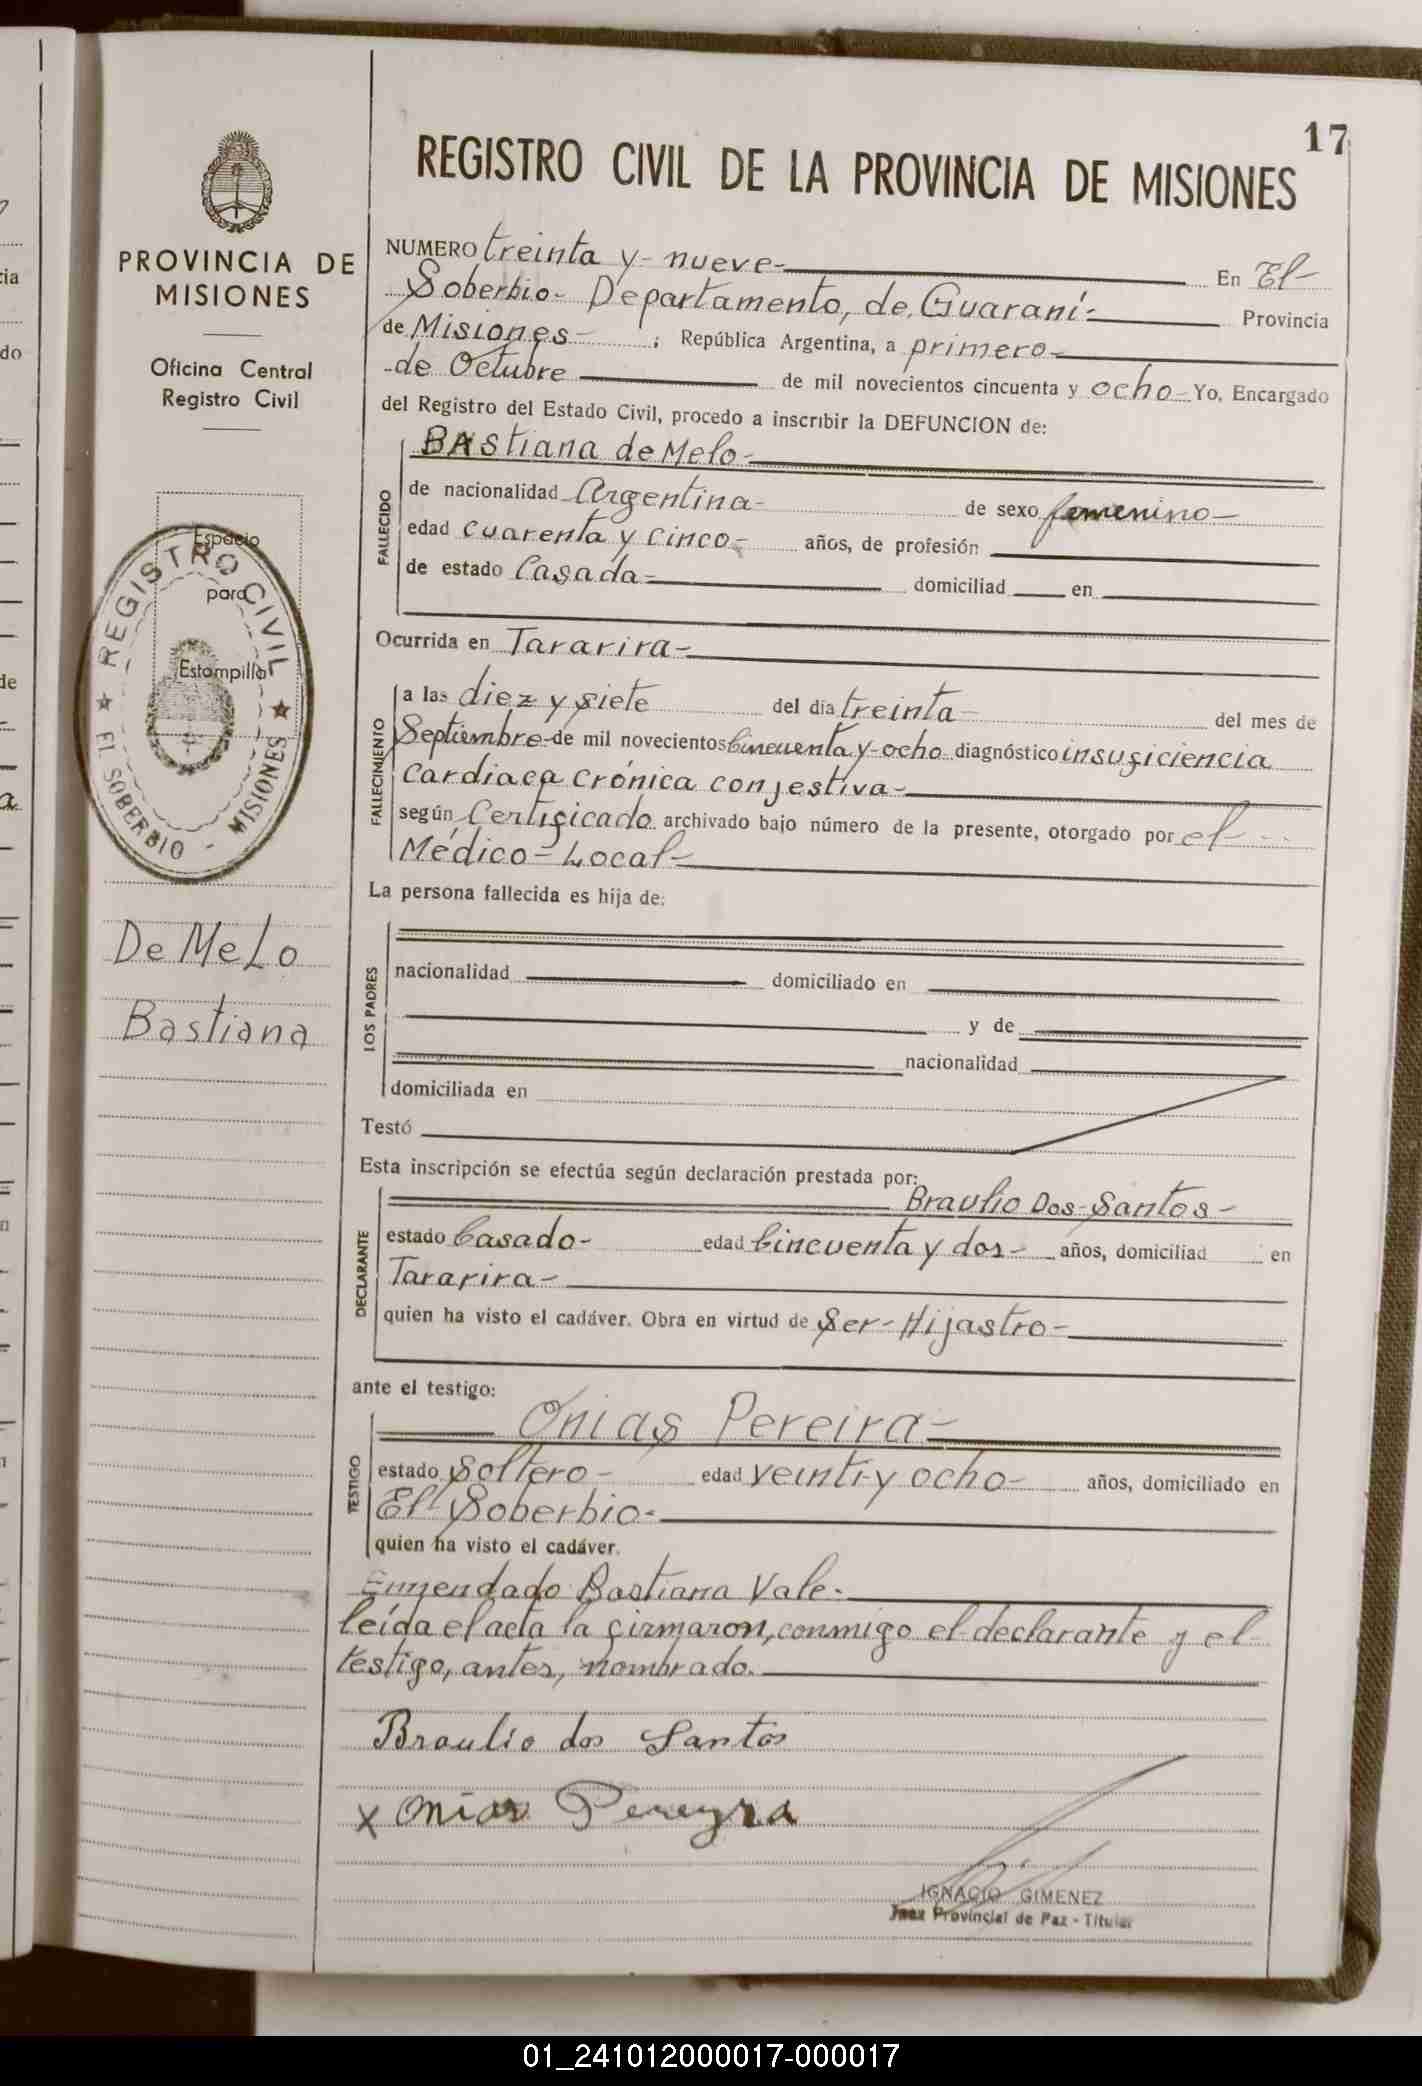 17
REGISTRO CIVIL DE LA PROVINCIA DE MISIONES
PROVINCIA DE
MISIONES
Oficina Central
Registro Civil
Espacio
para
Estampilla
REGISTRO CIVIL
EL SOBERBIO - MISIONES
De Melo
Bastiana
NUMERO treinta y nueve- En El-
Soberbio- Departamento, de Guaraní- Provincia
de Misiones- ; República Argentina, a primero-
-de Octubre de mil novecientos cincuenta y ocho- Yo, Encargado
del Registro del Estado Civil, procedo a inscribir la DEFUNCION de:
FALLECIDO
BAStiana de Melo-
de nacionalidad Argentina- de sexo femenino-
edad cuarenta y cinco- años, de profesión
de estado Casada- domiciliad en
Ocurrida en Tararira-
FALLECIMIENTO
a las diez y siete del día treinta- del mes de
Septiembre- de mil novecientos Cincuenta y-ocho diagnóstico insuficiencia
cardiaca crónica conjestiva-
según Certificado archivado bajo número de la presente, otorgado por el-
Médico- Local-
La persona fallecida es hija de:
LOS PADRES
nacionalidad domiciliado en
y de
nacionalidad
domiciliada en
Testó
Esta inscripción se efectúa según declaración prestada por:
DECLARANTE
Braulio Dos-Santos-
estado Casado- edad Cincuenta y dos- años, domiciliad en
Tararira-
quien ha visto el cadáver. Obra en virtud de Ser-Hijastro-
ante el testigo:
TESTIGO
Onias Pereira-
estado Soltero- edad veinti-y ocho- años, domiciliado en
El Soberbio-
quien ha visto el cadáver.
Enmendado Bastiana Vale-
leída el acta la firmaron, conmigo el declarante y el-
testigo, antes, nombrado.
Braulio dos Santos
x Onias Pereyra
IGNACIO GIMENEZ
Juez Provincial de Paz - Titular
01_241012000017-000017